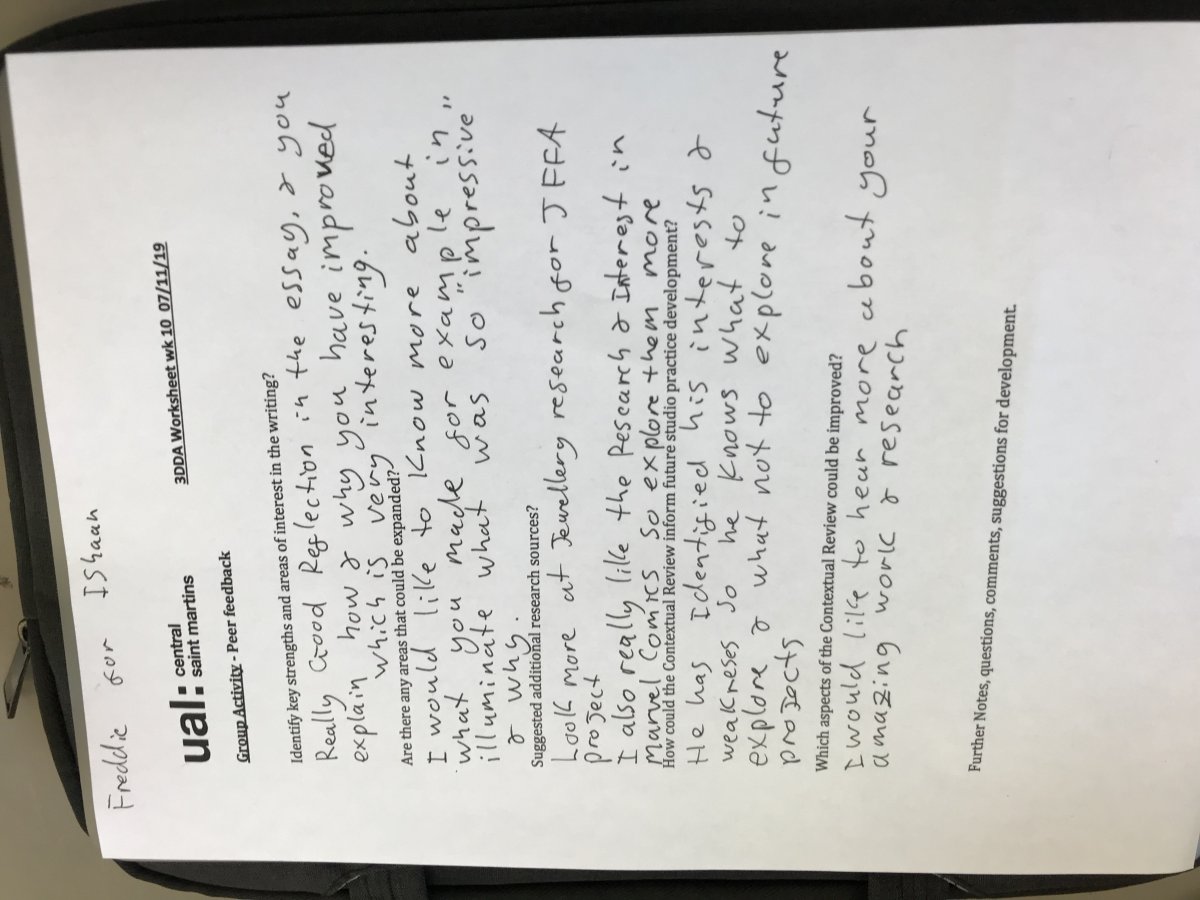 Freddie for IShaan
ual: central
saint martins
3DDA Worksheet wk 10 07/11/19
Group Activity - Peer feedback
Identify key strengths and areas of interest in the writing?
Really Good Reflection in the essay, & you
explain how & why you have improved
which is very interesting.
Are there any areas that could be expanded?
I would like to Know more about
what you made for example in
illuminate what was so "impressive"
& why.
Suggested additional research sources?
Look more at Jewellery research for JFFA
project
I also really like the Research & Interest in
marvel Comics so explore them more
How could the Contextual Review inform future studio practice development?
He has Identified his interests &
weakneses so he Knows what to
explore & what not to explore in future
projects
Which aspects of the Contextual Review could be improved?
I would like to hear more about your
amazing work & research
Further Notes, questions, comments, suggestions for development.